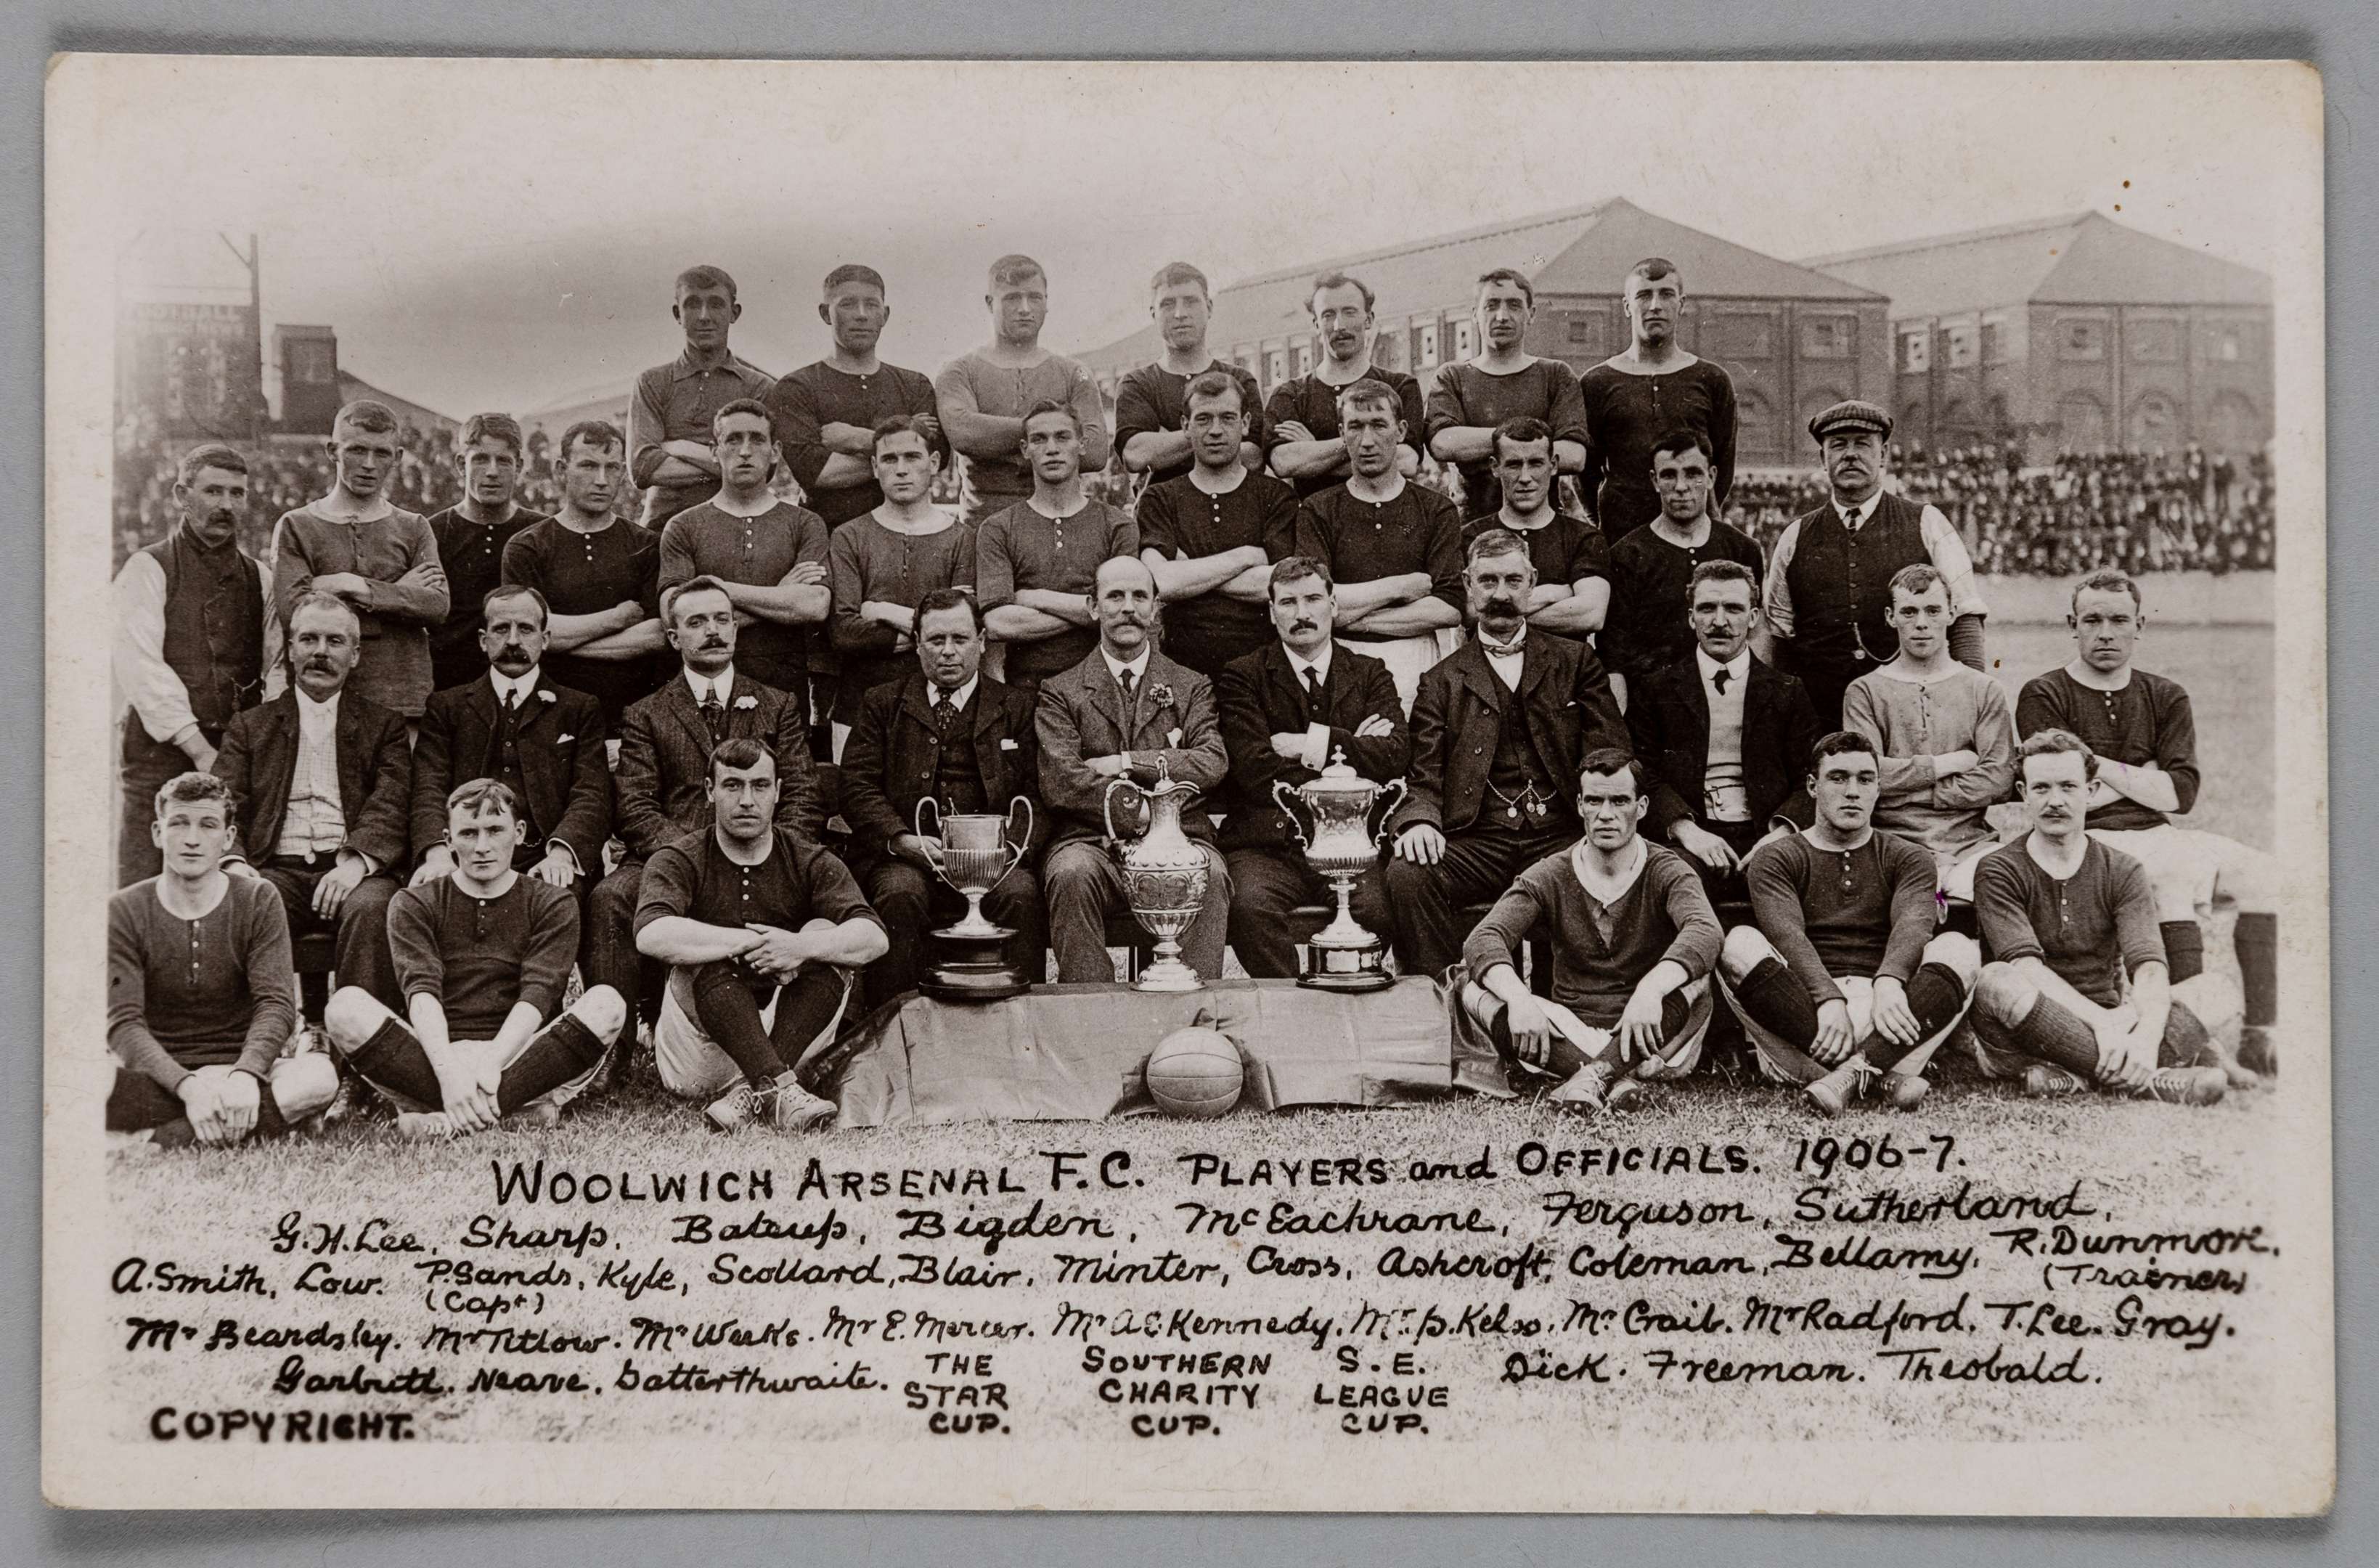 FOOTBALL
WOOLWICH ARSENAL F.C. PLAYERS and OFFICIALS. 1906-7.
G.H.Lee, Sharp, Bateup, Bigden, McEachrane, Ferguson, Sutherland,
A.Smith, Low. P.Sands, Kyle, Scollard, Blair, Minter, Cross, Ashcroft, Coleman, Bellamy, R.Dunmore,
(Capt) (Trainer)
Mr Beardsley. Mr Titlow. Mr Weeks. Mr E. Mercer. Mr A.C Kennedy. Mr P. Kelso. Mr Crail. Mr Radford. T.Lee. Gray.
Garbutt. Neave. Satterthwaite. THE SOUTHERN S.E. Dick. Freeman. Theobald.
STAR CHARITY LEAGUE
CUP. CUP. CUP.
COPYRIGHT.